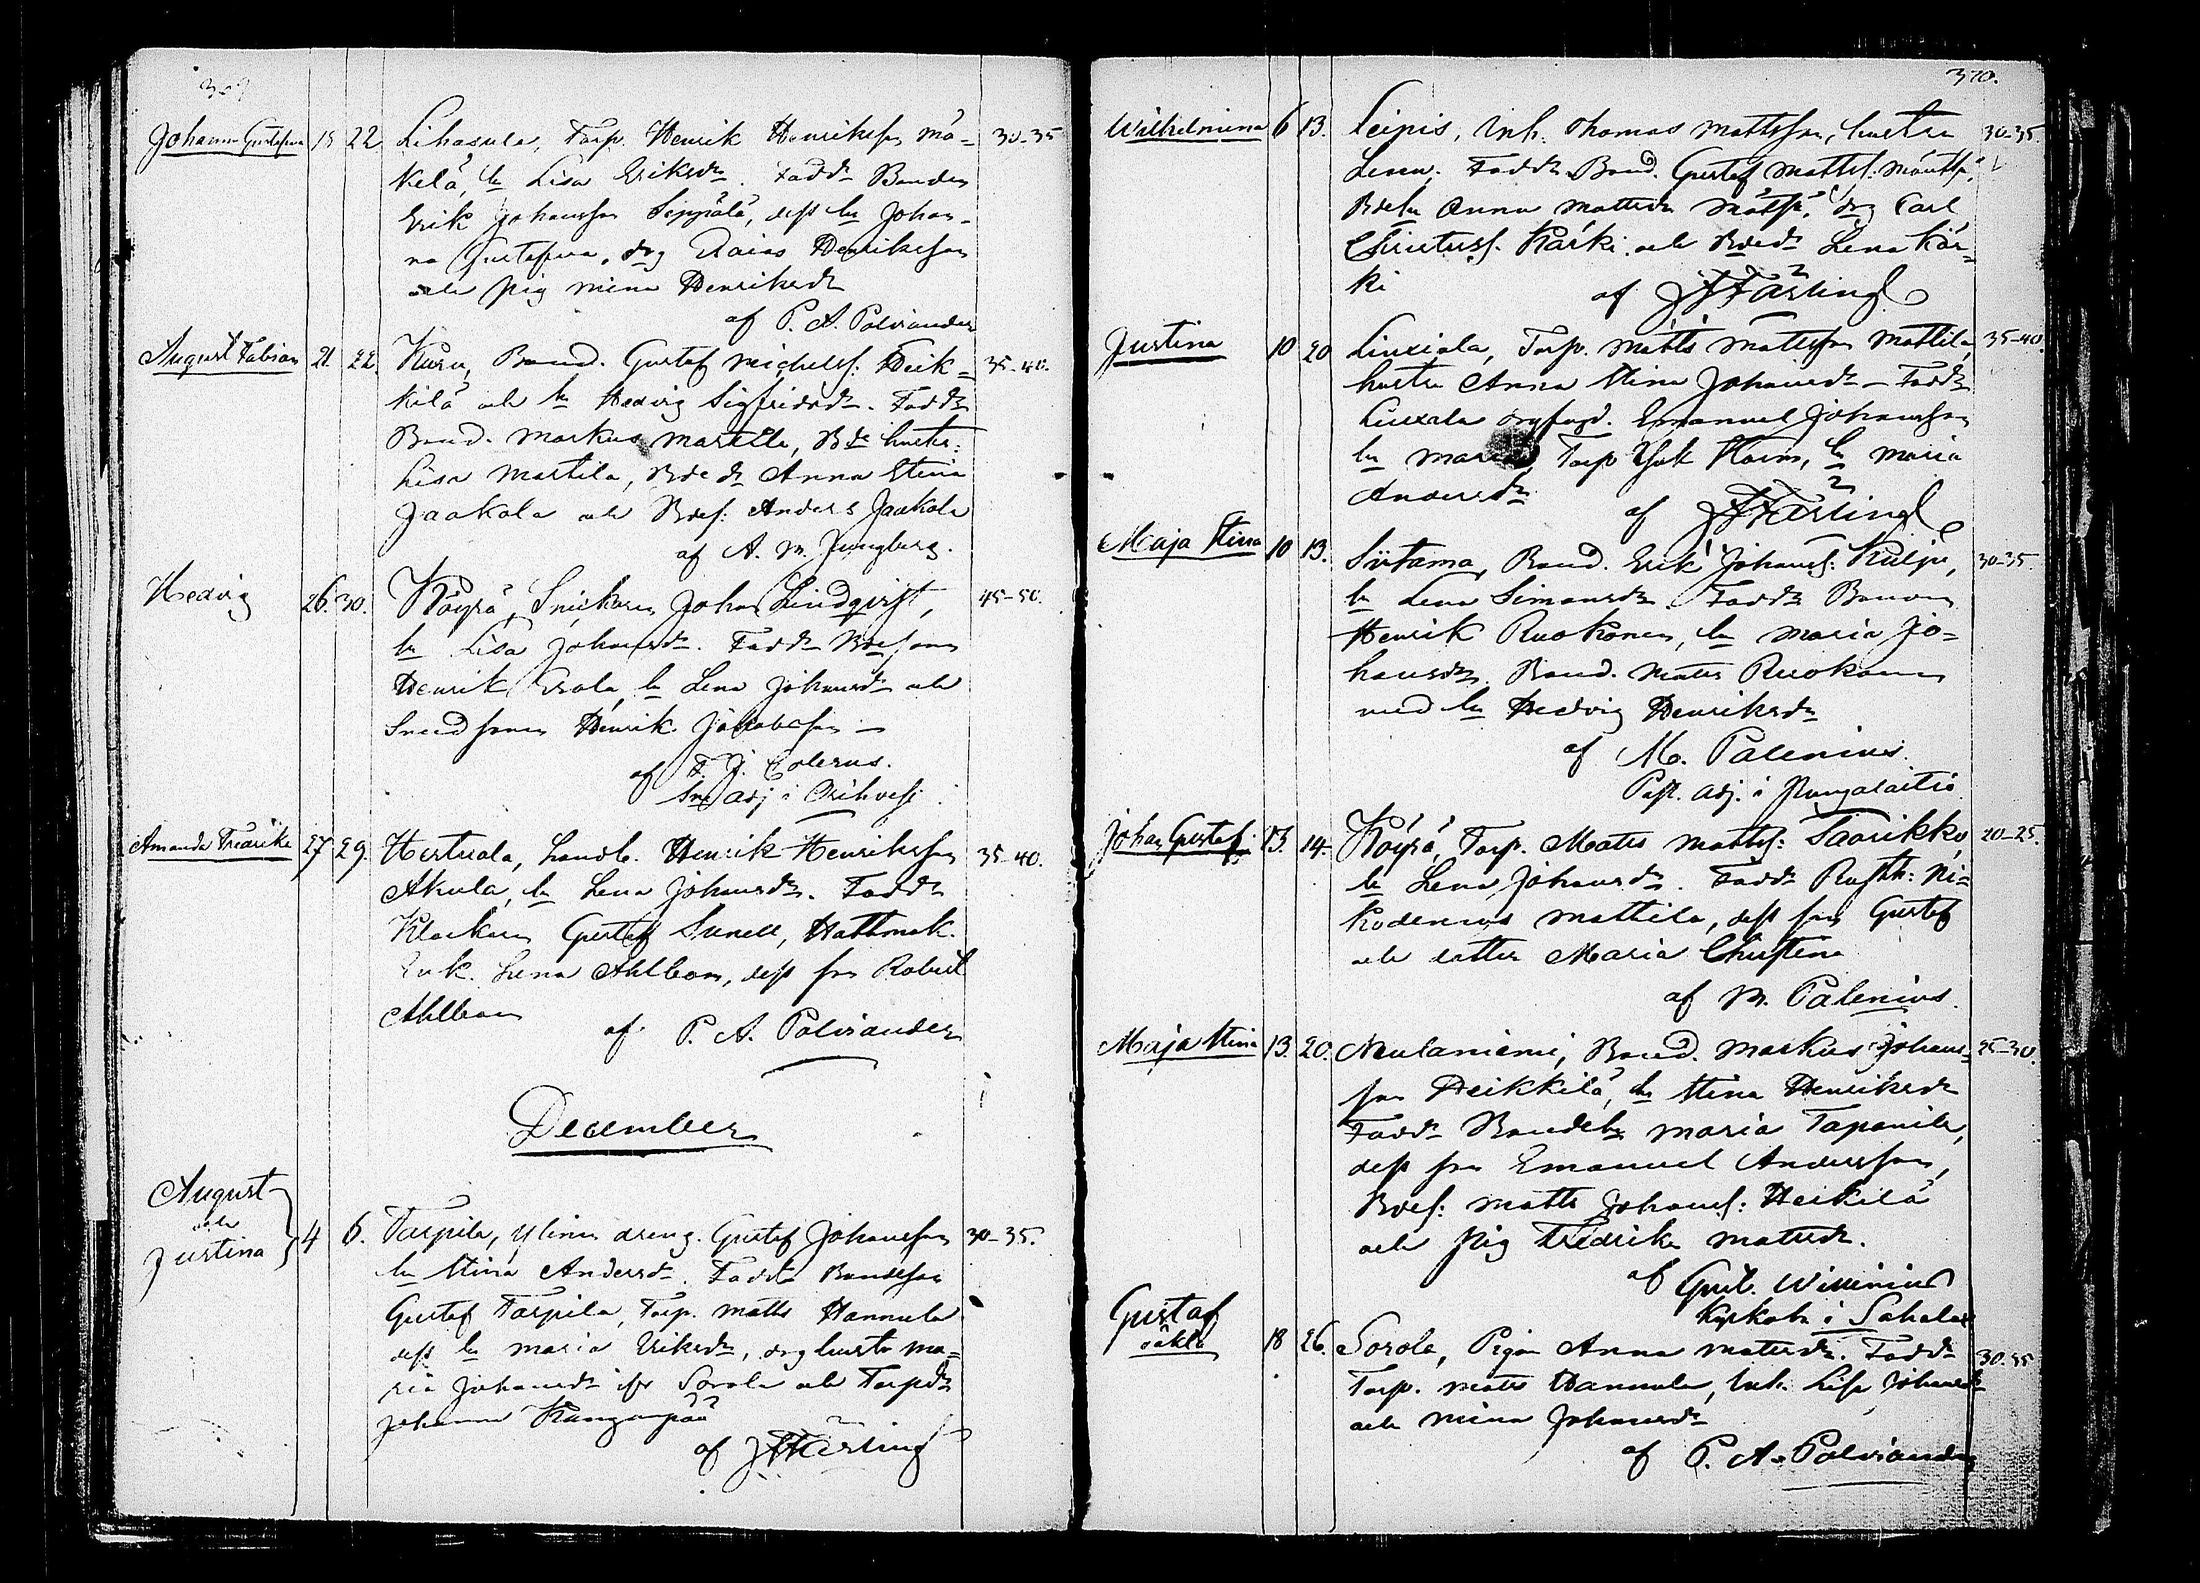 Johanna Gustafva 15 22 Lihasula, Torp. Henrik Henriksson Mä= 30-35
kelä, hu Lisa Eriksdr. Fadd: Bonden
Erik Johansson Seppälä, dess hu Johan-
na Gustafva, drg Esaias Henriksson
och pig Mina Henriksdr
af P. A. Polviander
August Fabian 21. 22. Kuru, Bond. Gustaf Michelss: Heik= 35-40.
kilä och hu Hedvig Sigfridsdr. Fadd:
Bond. Markus Martila, Bde hustr:
Lisa Martila, Bde dr Anna Stina
Jaakola och Bdes: Anders Jaakola
af A. M. Jungberg.
Hedvig 26. 30. Köyrä, Snickaren Johan Lindqvist, 45-50.
hu Lisa Johansdr. Fadd: Bdesonen
Henrik Erola, hu Lena Johansdr och
Smedsonen Henrik Jakobsson
af F. J. Colerus.
Sne adj i Orihvesi
Amanda Fredrika 27 29. Hertuala, Landb. Henrik Henriksson 35-40.
Akula, hu Lena Johansdr. Fadd:
Klockaren Gustaf Sunell, Hattmak.
Enk. Lena Ahlbom, dess son Robert
Ahlbom
af P. A. Polviander
December
August
och
Justina 4 6. Tarpila, Ylinen dreng. Gustaf Johansson 30-35.
hu Stina Andersdr. Fadd: Bondeson
Gustaf Tarpila, Torp. Matts Hannula
dess hu Maria Eriksdr, drg hustr Ma=
ria Johansdr ifr Sorola och Torpdr
Johanna Kangenpää
af J F Färling
370.
Wilhelmina 6 13. Leipis, Inh. Thomas Mattsson, hustru 30-35.
Lena. Fadd: Bond. Gustaf Mattss:
Bdehu Anna Mattsdr drg Carl
Christerss. Kärki och Bdedr Lena Kär=
ki
af J F Färling
Justina 10 20 Liuxiala, Torp. Matts Mattsson Mattila, 35-40.
hustru Anna Stina Johansdr - Fadd:
Liuxala Emanuel Johansson
hu Maria, Torp. Isak hu Maria
Andersdr
af J F Färling
Maja Stina 10 13. Siitama, Bond. Erik Johanss: Kulju, 30-35.
hu Lena Simonsdr. Fadd: Bonden
Henrik Ruokonen, hu Maria Jo=
hansdr. Bond. Matts Ruokonen
med hu Hedvig Henriksdr
af M. Palenius.
Past. adj. i Kangasaitio
Johan Gustaf 13. 14. Köyrä, Torp. Matts Mattss: Taarikko, 20-25.
hu Lena Johansdr. Fadd: Rusth: Ni=
kodemus Mattila, dess son Gustaf
och dotter Maria Christina
af M. Palenius.
Maja Stina 13. 20. Neulaniemi, Bond. Markus Johans= 25-30.
son Heikkilä, hu Stina Henriksdr
Fadd: Bondehu Maria Tapanila,
dess son Emanuel Andersson,
Bdes: Matts Johanss: Heikkilä
och Pig Fredrika Matsdr.
af Gust. Willenius
Kapkobn i Sahalax
Gustaf
oäkta 18 26. Sorola, Pigan Anna Matsdr. Fadd: 30-35
Torp. Matts Hannula, Inh. Lisa Johansdr
och Mina Johansdr
af P. A. Polviander